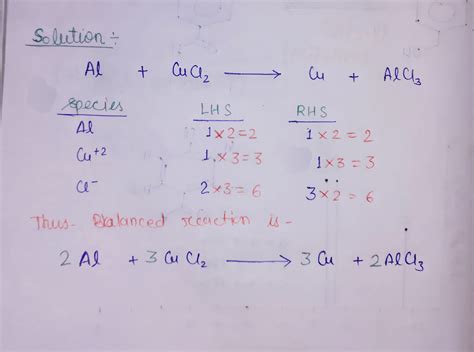 Solution :-
Al + CuCl2 → Cu + AlCl3
Species LHS RHS
Al 1×2=2 1×2=2
Cu+2 1×3=3 1×3=3
Cl- 2×3=6 3×2=6
Thus- Balanced reaction is -
2Al + 3CuCl2 → 3Cu + 2AlCl3